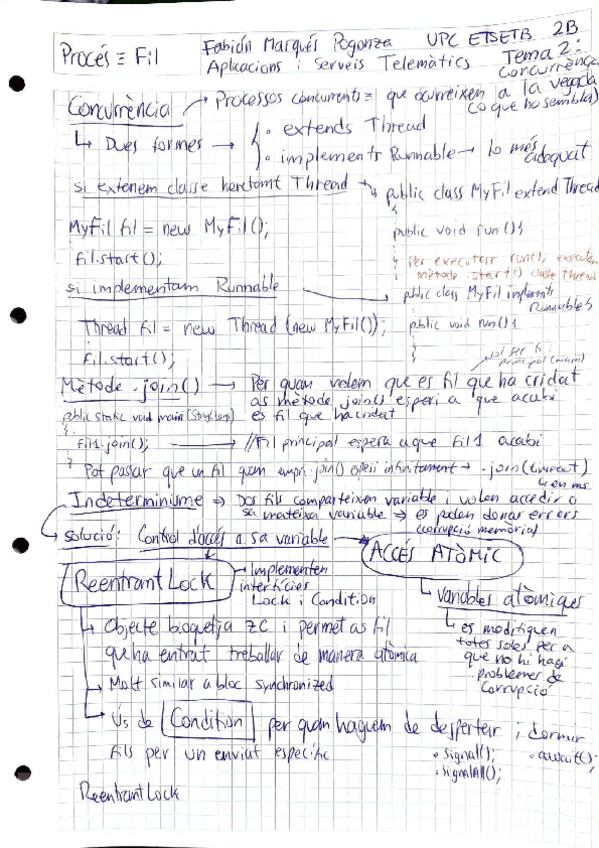 Procés ≡ Fil
Fabián Marqués Pogonza UPC ETSETB 2B
Aplicacions i Serveis Telemàtics
Tema 2:
Concurrència
Concurrència → Processos concurrents ≡ que ocurreixen a la vegada
(o que ho sembla)
↳ Dues formes → { · extends Thread
· implements Runnable → lo més
adequat
si extenem classe heretant Thread → public class MyFil extend Thread
{
MyFil fil = new MyFil();
public void run(){
fil.start();
}
per executar run(), executam
mètode start() classe Thread
si implementam Runnable → public class MyFil implements
Runnable {
Thread fil = new Thread (new MyFil());
public void run(){
fil.start();
}
sol ser fil
principal (main)
Mètode .join() → Per quan volem que es fil que ha cridat
as mètode join() esperi a que acabi
es fil que ha cridat
public static void main (String args)
{
fil1.join(); → //Fil principal espera a que fil1 acabi
}
Pot passar que un fil quan empri .join() esperi infinitament → .join(timeout)
↳ en ms
Indeterminisme ⇒ Dos fils comparteixen variable i volen accedir a
sa mateixa variable ⇒ es poden donar errors
(corrupció memòria)
→ solució: Control d'accés a sa variable → ACCÉS ATÒMIC
ReentrantLock → Implementen
interfícies
Lock i Condition
↳ Variables atòmiques
↳ es modifiquen
totes soles per a
que no hi hagi
problemes de
corrupció
↳ Objecte bloquetja ZC i permet as fil
que ha entrat treballar de manera atòmica
↳ Molt similar a bloc synchronized
↳ Ús de Condition per quan haguem de despertar i dormir
fils per un enviat específic
· signal();
· await();
· signalAll();
ReentrantLock